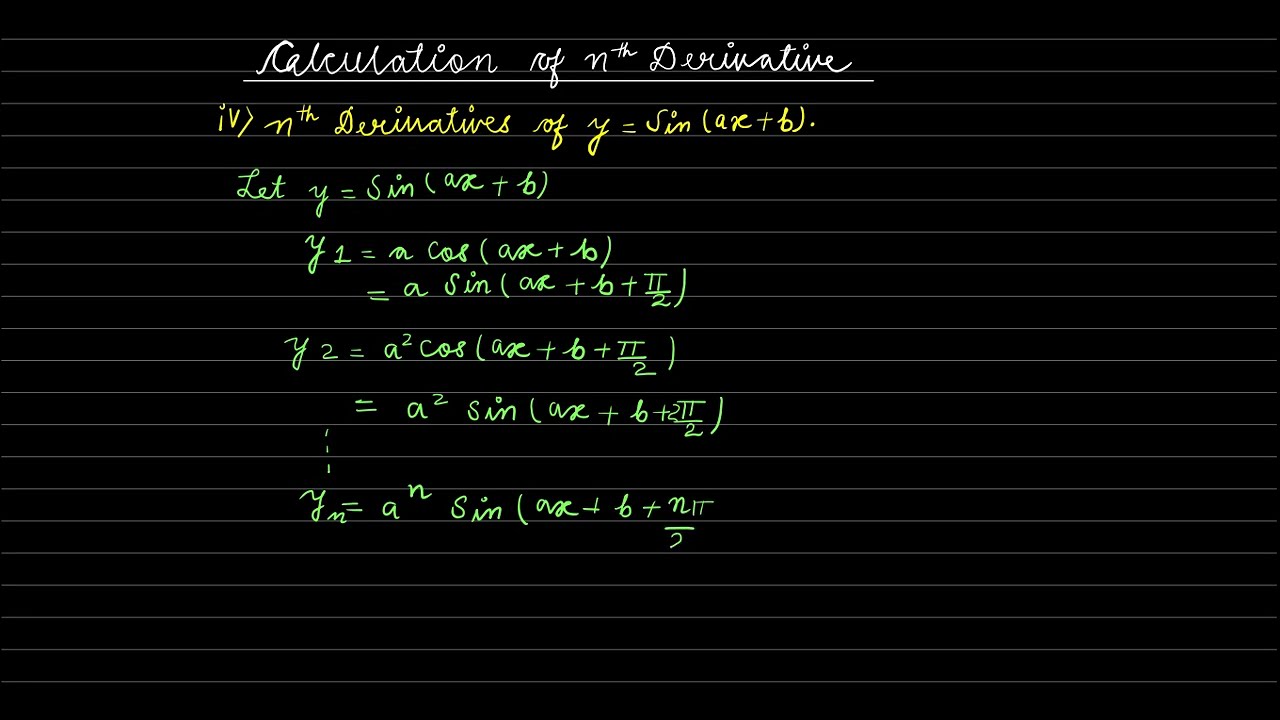 Calculation of nth Derivative
iv) nth Derivatives of y = Sin(ax+b).
Let y = Sin(ax + b)
y1 = a cos(ax + b)
= a Sin(ax + b + π/2)
y2 = a² cos(ax + b + π/2)
= a² sin(ax + b + 2π/2)
⋮
yn = a^n Sin(ax + b + nπ/2